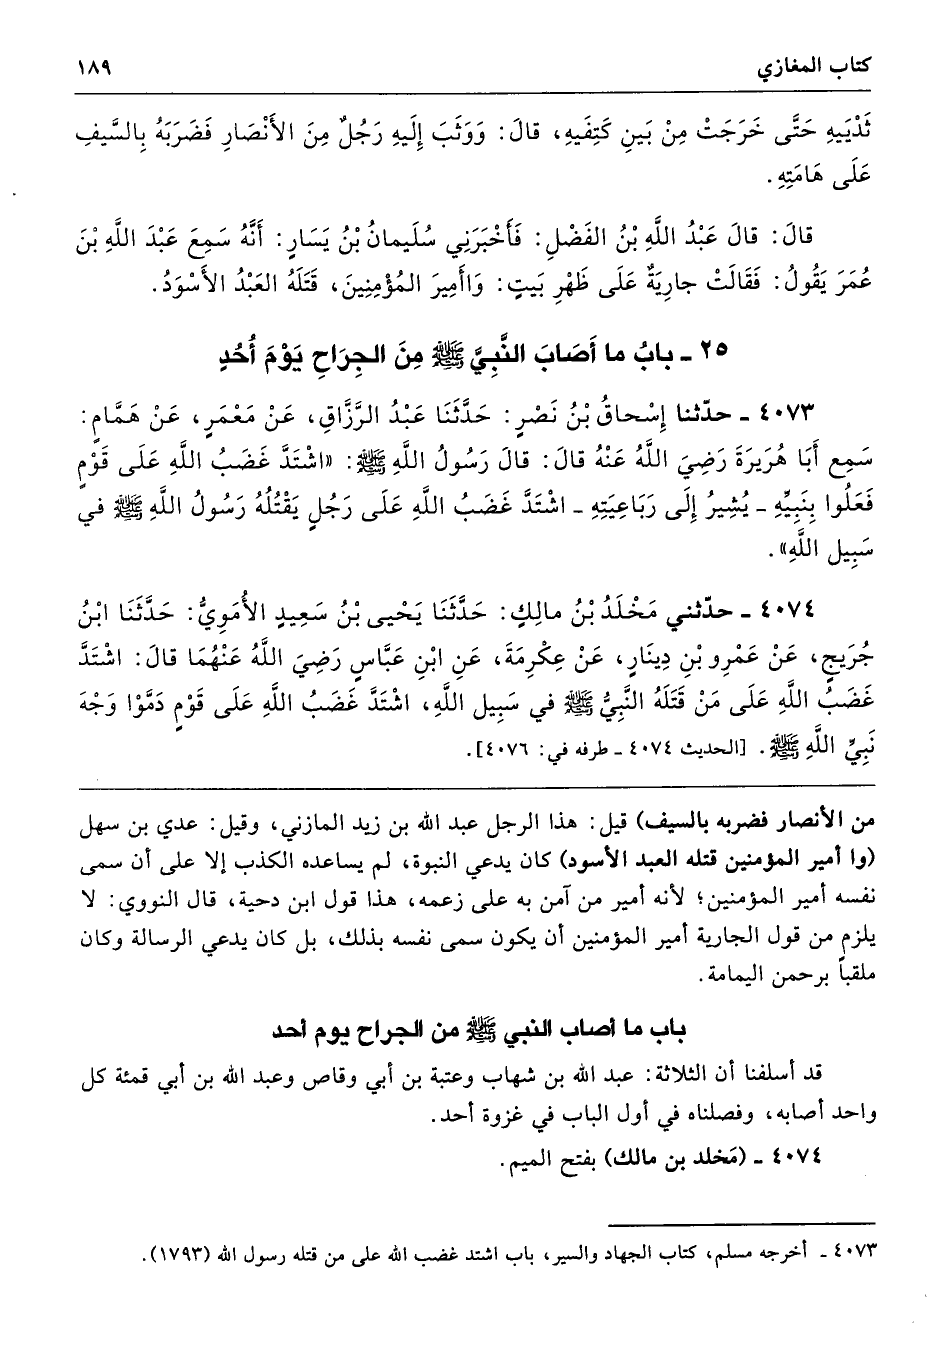 كتاب المغازي ١٨٩
ثَدْيَيهِ حَتَّى خَرَجَتْ مِنْ بَينِ كَتِفَيهِ، قالَ: وَوَثَبَ إِلَيهِ رَجُلٌ مِنَ الأَنْصَارِ فَضَرَبَهُ بِالسَّيفِ
عَلَى هَامَتِهِ.
قالَ: قالَ عَبْدُ اللَّهِ بْنُ الفَضْلِ: فَأَخْبَرَنِي سُلَيمانُ بْنُ يَسَارٍ: أَنَّهُ سَمِعَ عَبْدَ اللَّهِ بْنَ
عُمَرَ يَقُولُ: فَقَالَتْ جارِيَةٌ عَلَى ظَهْرِ بَيتٍ: وَاأَمِيرَ المُؤْمِنِينَ، قَتَلَهُ العَبْدُ الأَسْوَدُ.
٢٥ ـ بابُ ما أَصَابَ النَّبِيَّ ﷺ مِنَ الجِرَاحِ يَوْمَ أُحُدٍ
٤٠٧٣ ـ حدّثنا إِسْحاقُ بْنُ نَصْرٍ: حَدَّثَنَا عَبْدُ الرَّزَّاقِ، عَنْ مَعْمَرٍ، عَنْ هَمَّامٍ:
سَمِع أَبَا هُرَيرَةَ رَضِيَ اللَّهُ عَنْهُ قالَ: قالَ رَسُولُ اللَّهِ ﷺ: «اشْتَدَّ غَضَبُ اللَّهِ عَلَى قَوْمٍ
فَعَلُوا بِنَبِيِّهِ ـ يُشِيرُ إِلَى رَبَاعِيَتِهِ ـ اشْتَدَّ غَضَبُ اللَّهِ عَلَى رَجُلٍ يَقْتُلُهُ رَسُولُ اللَّهِ ﷺ في
سَبِيل اللَّهِ».
٤٠٧٤ ـ حدّثني مَخْلَدُ بْنُ مالِكٍ: حَدَّثَنَا يَحْيى بْنُ سَعِيدٍ الأُمَوِيُّ: حَدَّثَنَا ابْنُ
جُرَيجٍ، عَنْ عَمْرِو بْنِ دِينَارٍ، عَنْ عِكْرِمَةَ، عَنِ ابْنِ عَبَّاسٍ رَضِيَ اللَّهُ عَنْهُمَا قالَ: اشْتَدَّ
غَضَبُ اللَّهِ عَلَى مَنْ قَتَلَهُ النَّبِيُّ ﷺ في سَبِيل اللَّهِ، اشْتَدَّ غَضَبُ اللَّهِ عَلَى قَوْمٍ دَمَّوْا وَجْهَ
نَبِيِّ اللَّهِ ﷺ. [الحديث ٤٠٧٤ ـ طرفه في: ٤٠٧٦].
من الأنصار فضربه بالسيف) قيل: هذا الرجل عبد الله بن زيد المازني، وقيل: عدي بن سهل
(وا أمير المؤمنين قتله العبد الأسود) كان يدعي النبوة، لم يساعده الكذب إلا على أن سمى
نفسه أمير المؤمنين؛ لأنه أمير من آمن به على زعمه، هذا قول ابن دحية، قال النووي: لا
يلزم من قول الجارية أمير المؤمنين أن يكون سمى نفسه بذلك، بل كان يدعي الرسالة وكان
ملقباً برحمن اليمامة.
باب ما أصاب النبي ﷺ من الجراح يوم أحد
قد أسلفنا أن الثلاثة: عبد الله بن شهاب وعتبة بن أبي وقاص وعبد الله بن أبي قمئة كل
واحد أصابه، وفصلناه في أول الباب في غزوة أحد.
٤٠٧٤ ـ (مَخلد بن مالك) بفتح الميم.
٤٠٧٣ ـ أخرجه مسلم، كتاب الجهاد والسير، باب اشتد غضب الله على من قتله رسول الله (١٧٩٣).